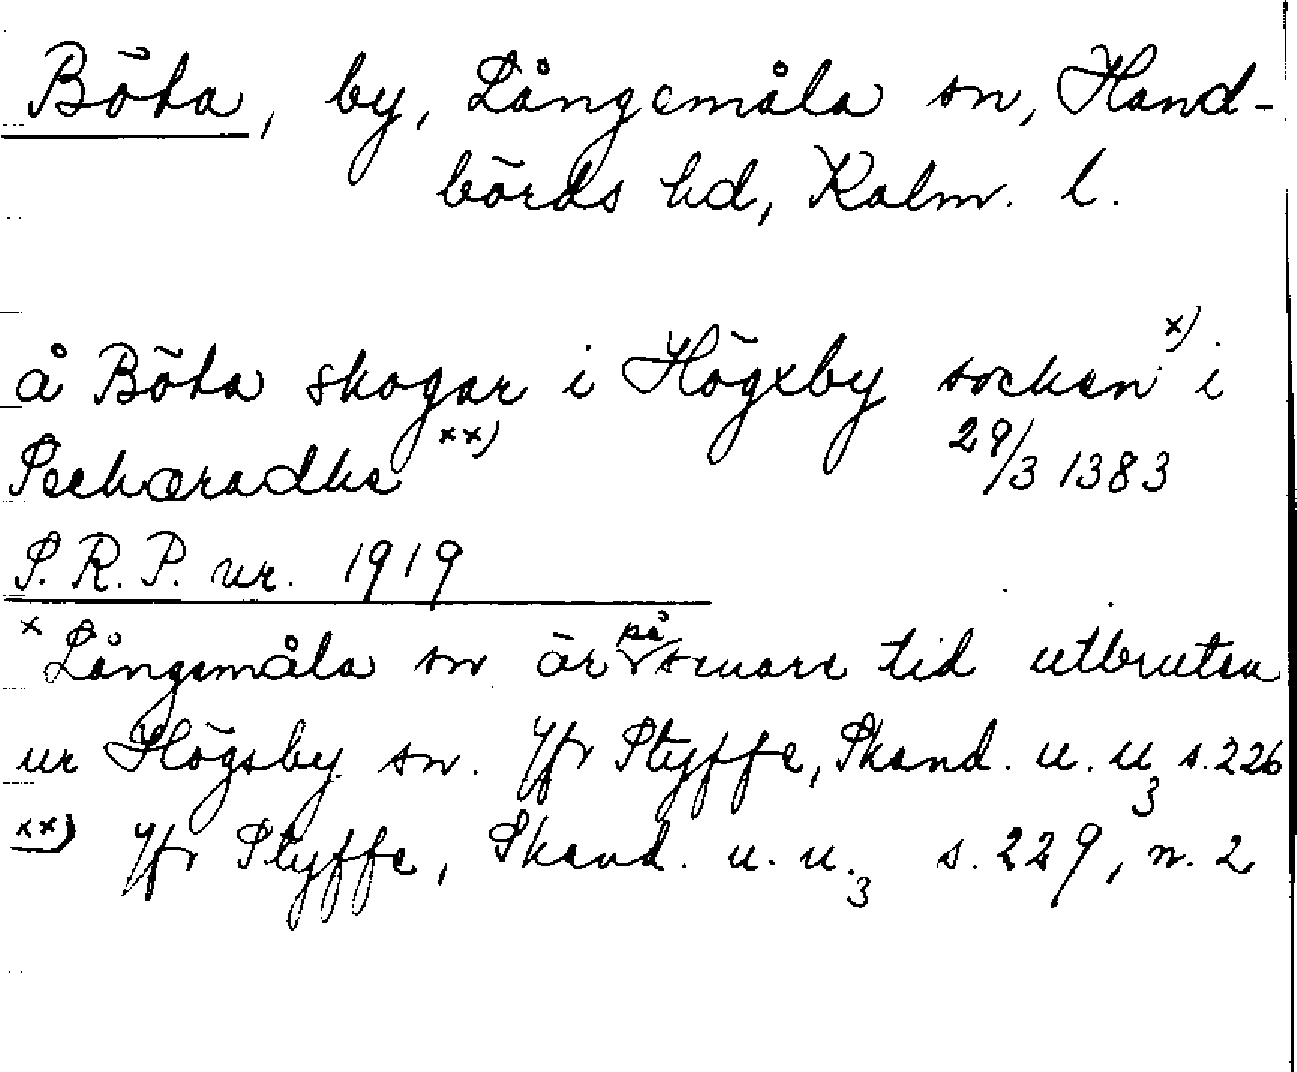 Böta, by, Långemåla sn, Hand-
börds hd, Kalm. l.
å Böta skogar i Högxby socken x) i
Seehæradhe xx) 29/3 1383
S.R.P. nr. 1919
x Långemåla sn är på senare tid utbruten
ur Högsby sn. Jfr Styffe, Skand. u. u3 s. 226
xx) Jfr Styffe, Skand. u. u.3 s. 229, n. 2